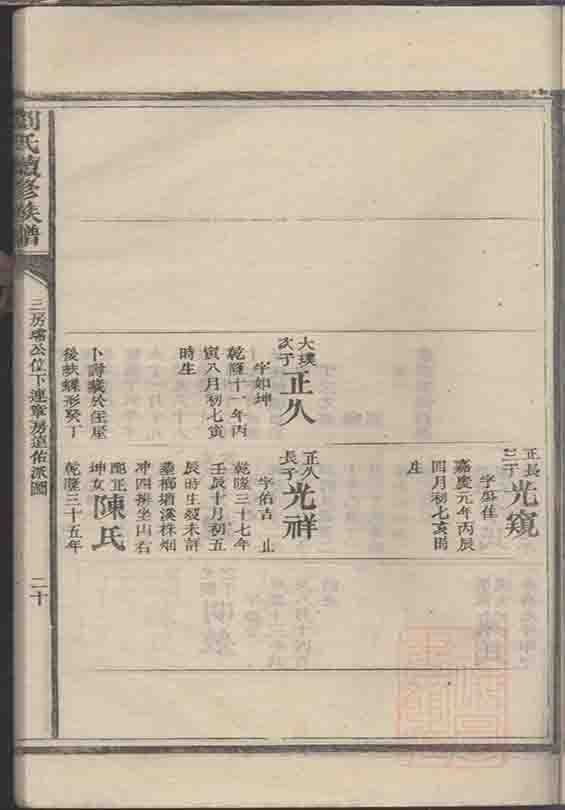 劉氏續修族譜
三房璿公位下連章房達佑派圖
二十
正長
二子
光窺
字麻佳
嘉慶元年丙辰
四月初七亥時
生
大璞
次子
正久
字如坤
乾隆十一年丙
寅八月初七寅
時生
卜壽藏於住屋
後蛺蝶形癸丁
正久
長子
光祥
字佑吉 止
乾隆三十七年
壬辰十月初五
辰時生歿未詳
葬榔塘漢株烟
冲四排坐山右
配正
坤女
陳氏
乾隆三十五年